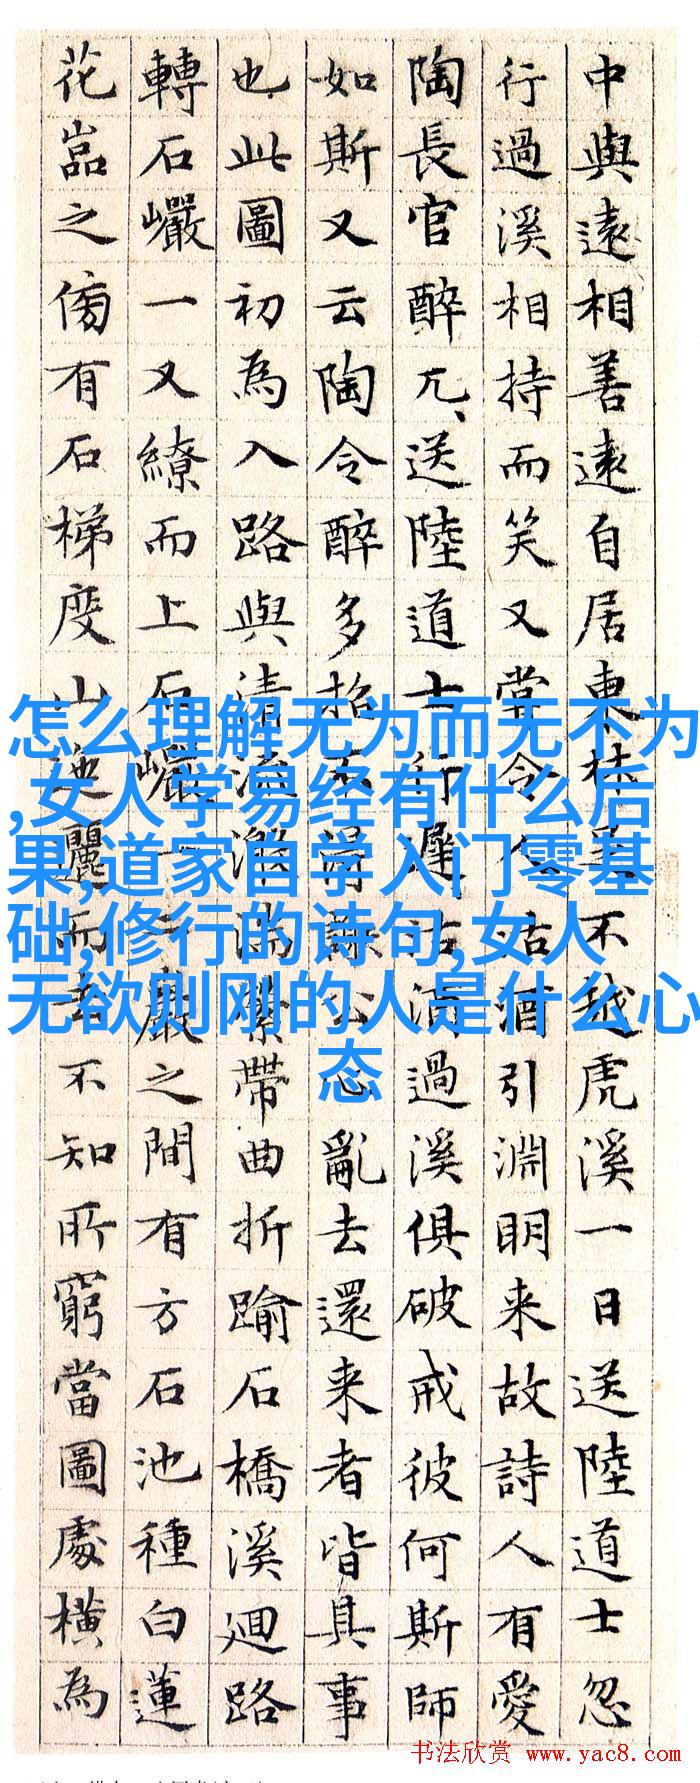 中與遠相善遠自居東林不越虎溪一日送陸道士忽
行過溪相持而笑又嘗令人沽酒引淵明来故詩人有愛
陶長官醉兀、送陸道士行遲沽酒過溪俱破戒彼何斯師
如斯又云陶令醉多招不得謝公心亂去還来者皆具事
也此圖初為入路與清流激湍縈帶曲折踰石橋溪迴路
轉石巖一又繚而上石巖巖之間有方石池種白蓮
花嵓之傍有石梯度山迤邐而去不知所窮當圖處橫為
怎么理解无为而无不为
,女人学易经有什么后
果,道家自学入门零基
础,修行的诗句,女人
无欲则刚的人是什么心
态
书法欣赏 www.yac8.com